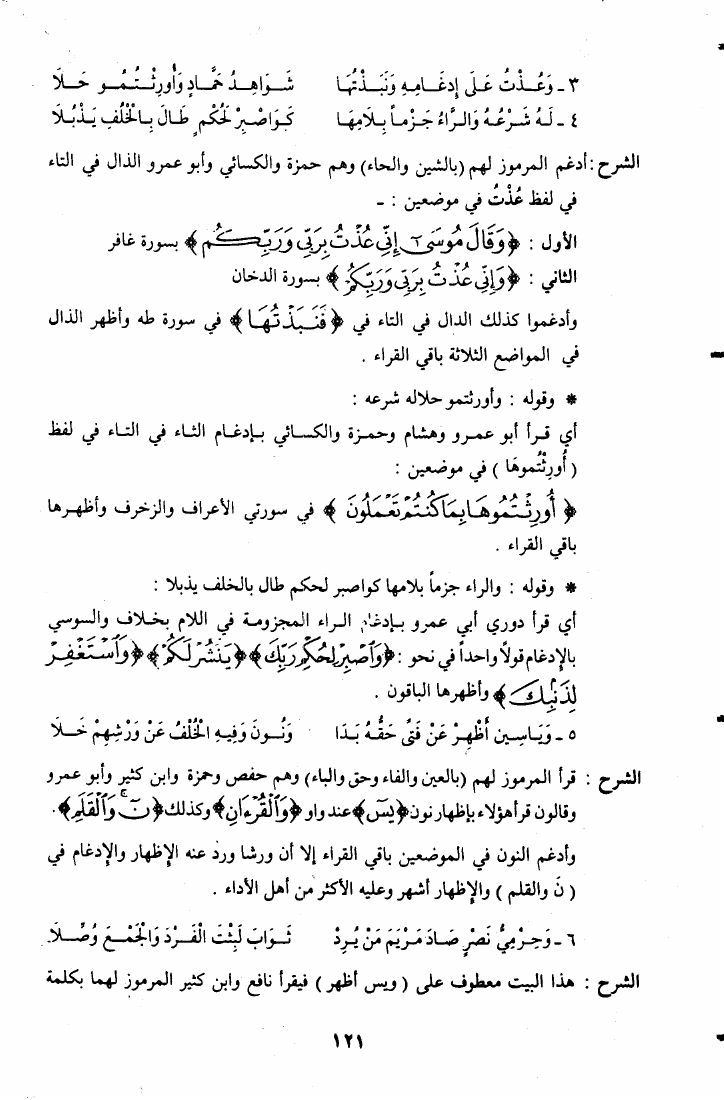 ٣ ـ وَعُذْتُ عَلَى إِدْغَامِهِ وَنَبَذْتُهَا شَوَاهِدُ حَمَّادٍ وَأُورِثْتُمُو حَلَا
٤ ـ لَهُ شَرْعُهُ وَالرَّاءُ جَزْماً بِلَامِهَا كَوَاصْبِرْ لِحُكْمِ طَالَ بِالْخُلْفِ يَذْبُلَا
الشرح : أدغم المرموز لهم (بالشين والحاء) وهم حمزة والكسائي وأبو عمرو الذال في التاء
في لفظ عُذْتُ في موضعين : ـ
الأول : ﴿وَقَالَ مُوسَىٰٓ إِنِّي عُذْتُ بِرَبِّي وَرَبِّكُم﴾ بسورة غافر
الثاني : ﴿وَإِنِّي عُذْتُ بِرَبِّي وَرَبِّكُمْ﴾ بسورة الدخان
وأدغموا كذلك الدال في التاء في ﴿فَنَبَذْتُهَا﴾ في سورة طه وأظهر الذال
في المواضع الثلاثة باقي القراء .
* وقوله : وأورثتمو حلاله شرعه :
أي قرأ أبو عمرو وهشام وحمزة والكسائي بإدغام الثاء في التاء في لفظ
( أُورِثْتُموهَا ) في موضعين :
﴿ أُورِثْتُمُوهَا بِمَا كُنتُمْ تَعْمَلُونَ ﴾ في سورتي الأعراف والزخرف وأظهرها
باقي القراء .
* وقوله : والراء جزماً بلامها كواصبر لحكم طال بالخلف يذبلا :
أي قرأ دوري أبي عمرو بإدغام الراء المجزومة في اللام بخلاف والسوسي
بالإدغام قولاً واحداً في نحو : ﴿وَٱصْبِرْ لِحُكْمِ رَبِّكَ﴾ ﴿يَنشُرْ لَكُمْ﴾ ﴿وَٱسْتَغْفِرْ
لِذَنۢبِكَ﴾ وأظهرها الباقون .
٥ ـ وَيَاسِين أَظْهِرْ عَنْ فَتًى حَقُّهُ بَدَا وَنُونَ وَفِيهِ الْخُلْفُ عَنْ وَرْشِهِمْ خَلَا
الشرح : قرأ المرموز لهم (بالعين والفاء وحق والباء) وهم حفص وحمزة وابن كثير وأبو عمرو
وقالون قرأ هؤلاء بإظهار نون ﴿يسٓ﴾ عند واو ﴿وَٱلْقُرْءَانِ﴾ وكذلك ﴿نٓ وَٱلْقَلَمِ﴾.
وأدغم النون في الموضعين باقي القراء إلا أن ورشا ورد عنه الإظهار والإدغام في
( نَ والقلم ) والإظهار أشهر وعليه الأكثر من أهل الأداء .
٦ ـ وَحِرْمِيُّ نَصْرٍ صَادَ مَرْيَمَ مَنْ يُرِدْ ثَوَابَ لَبِثْتَ الْفَرْدَ وَالْجَمْعَ وُصِّلَا
الشرح : هذا البيت معطوف على ( ويس أظهر ) فيقرأ نافع وابن كثير المرموز لهما بكلمة
١٢١